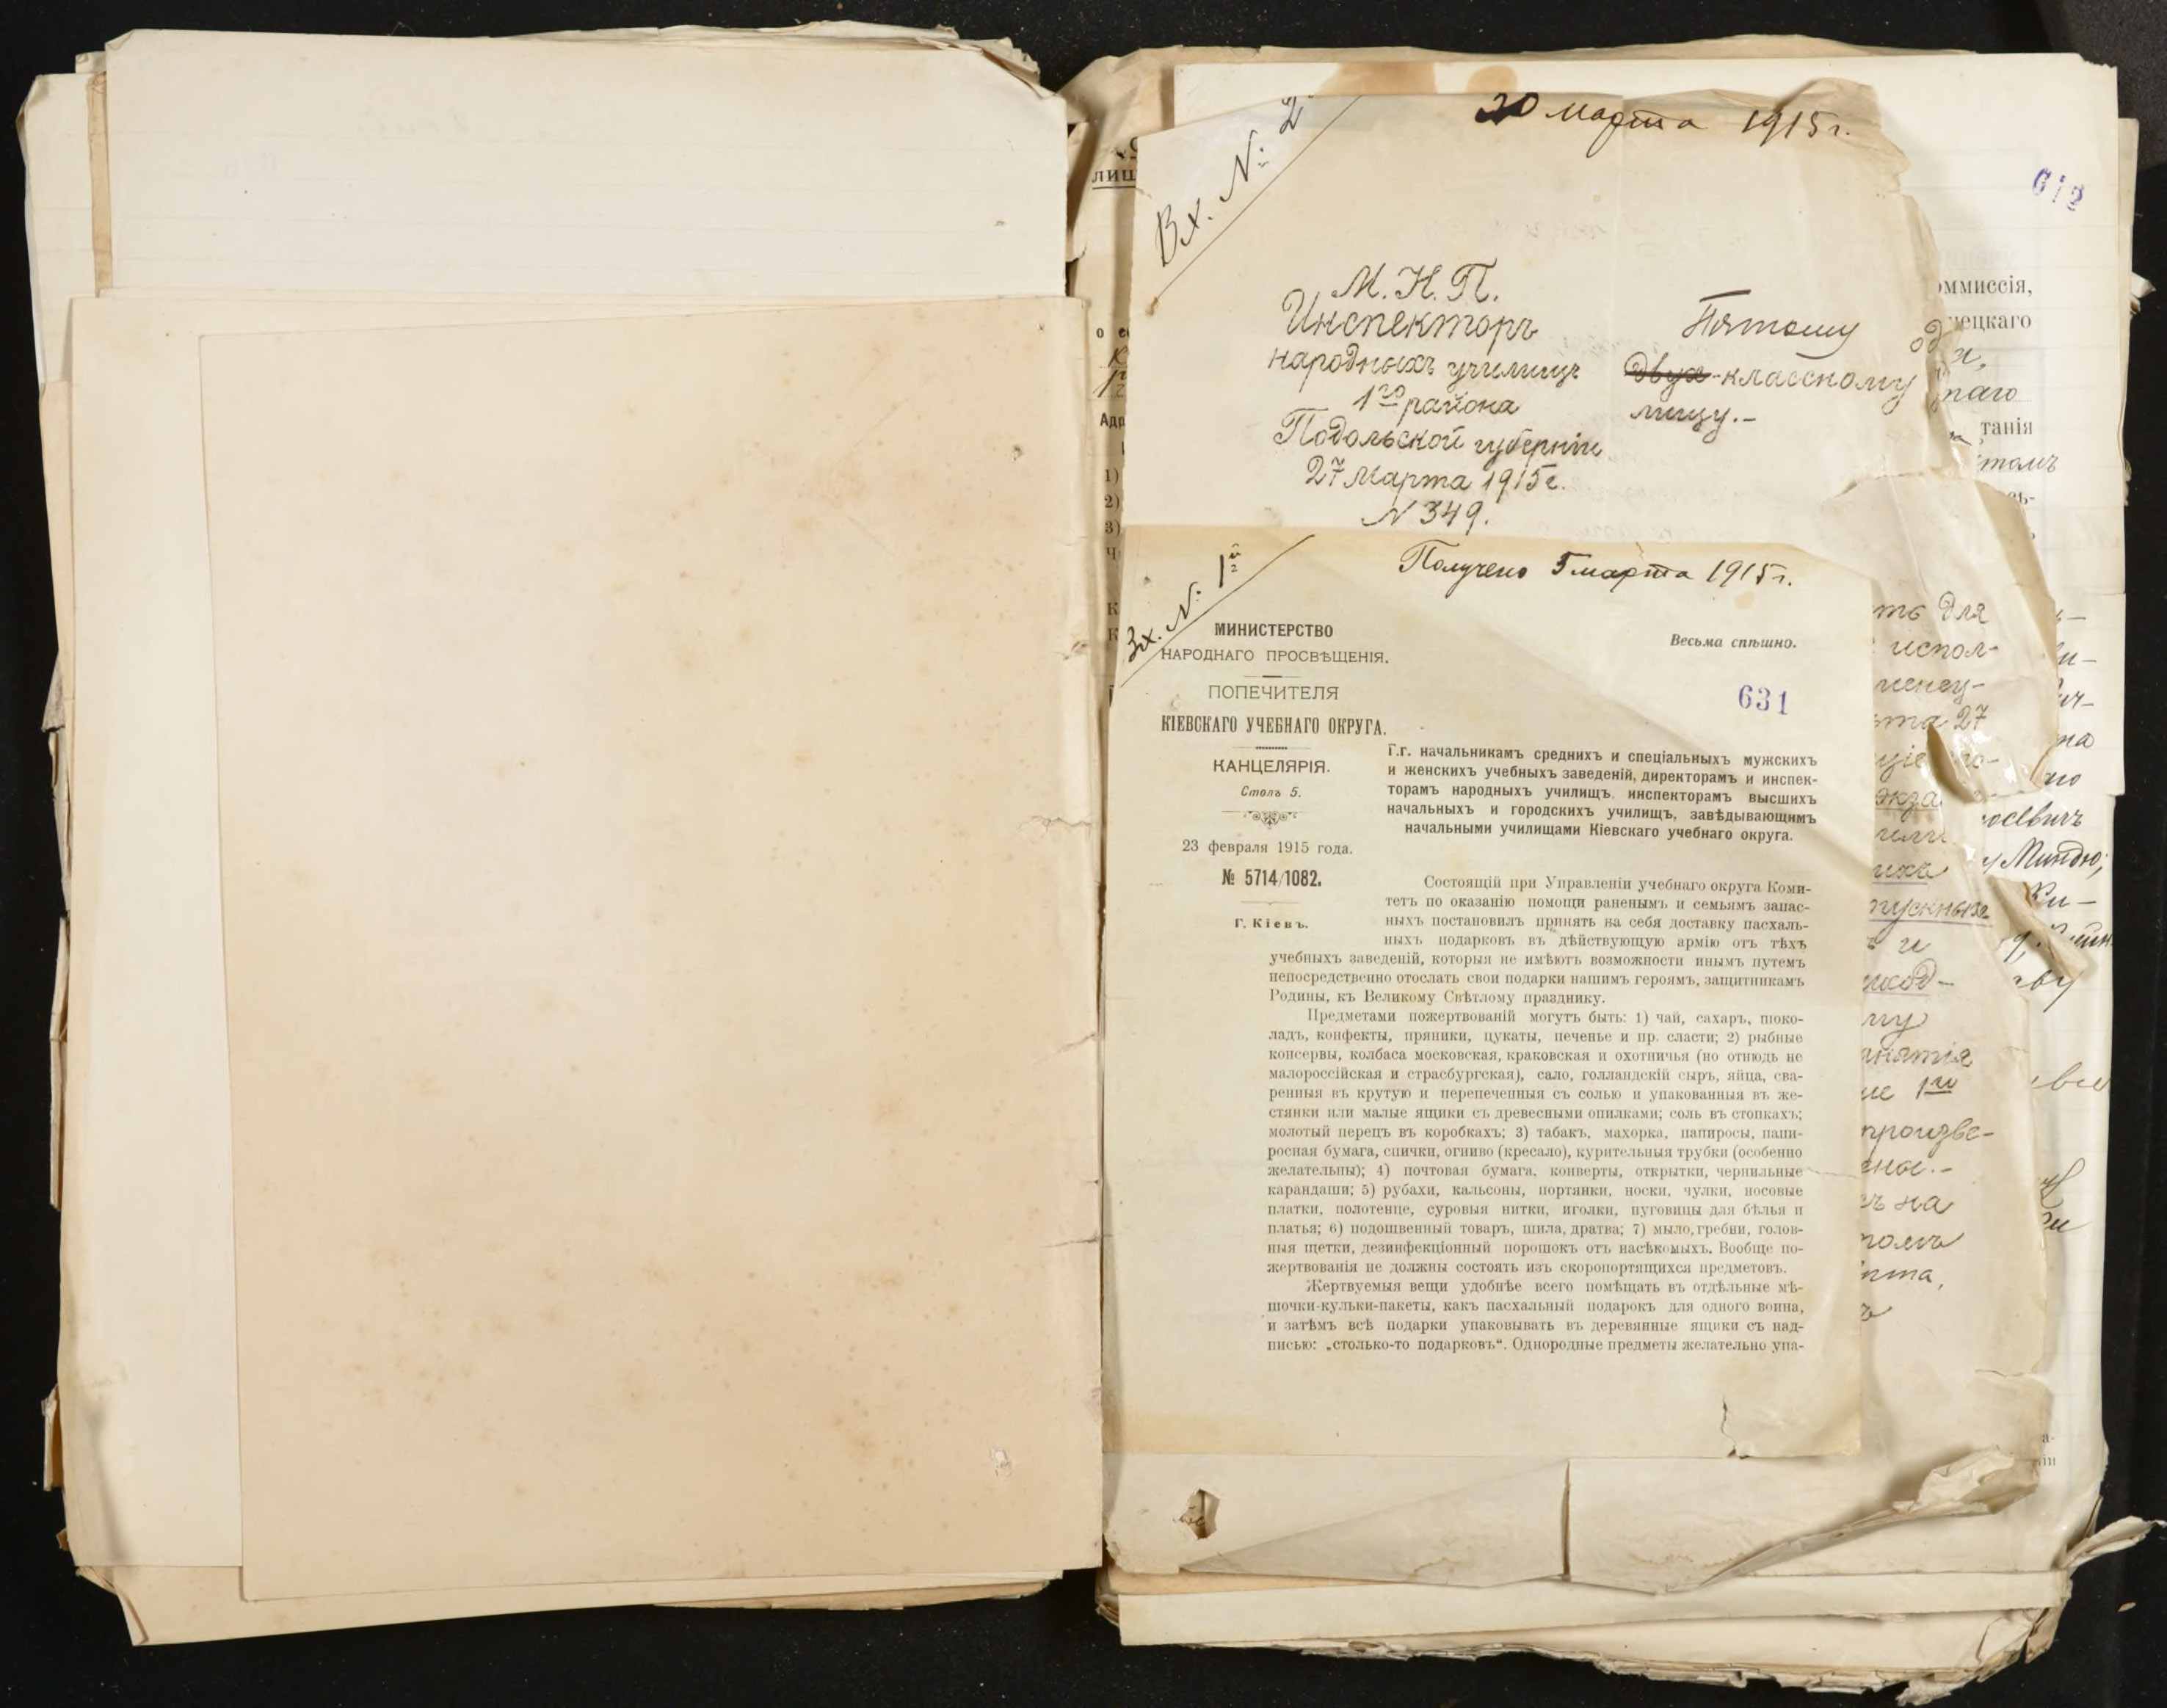 20 марта 1915 г.
Вх. №: 2
612
М. Н. П.
Инспекторъ
народныхъ училищъ
1го района
Подольской губерніи
27 Марта 1915 г.
№ 349.
Пятому од
двух-классному
лищу.-
оммиссія,
нецкаго
танія
Получено 5 марта 1915 г.
Вх. №: 1й
МИНИСТЕРСТВО
НАРОДНАГО ПРОСВѢЩЕНІЯ.
ПОПЕЧИТЕЛЯ
КІЕВСКАГО УЧЕБНАГО ОКРУГА.
КАНЦЕЛЯРІЯ.
Столъ 5.
23 февраля 1915 года.
№ 5714/1082.
Г. Кіевъ.
Весьма спѣшно.
631
Г.г. начальникамъ среднихъ и спеціальныхъ мужскихъ
и женскихъ учебныхъ заведеній, директорамъ и инспек-
торамъ народныхъ училищъ, инспекторамъ высшихъ
начальныхъ и городскихъ училищъ, завѣдывающимъ
начальными училищами Кіевскаго учебнаго округа.
Состоящій при Управленіи учебнаго округа Коми-
тетъ по оказанію помощи раненымъ и семьямъ запас-
ныхъ постановилъ принять на себя доставку пасхаль-
ныхъ подарковъ въ дѣйствующую армію отъ тѣхъ
учебныхъ заведеній, которыя не имѣютъ возможности инымъ путемъ
непосредственно отослать свои подарки нашимъ героямъ, защитникамъ
Родины, къ Великому Свѣтлому празднику.
Предметами пожертвованій могутъ быть: 1) чай, сахаръ, шоко-
ладъ, конфекты, пряники, цукаты, печенье и пр. сласти; 2) рыбные
консервы, колбаса московская, краковская и охотничья (но отнюдь не
малороссійская и страсбургская), сало, голландскій сыръ, яйца, сва-
ренныя въ крутую и перепеченныя съ солью и упакованныя въ же-
стянки или малые ящики съ древесными опилками; соль въ стопкахъ;
молотый перецъ въ коробкахъ; 3) табакъ, махорка, папиросы, папи-
росная бумага, спички, огниво (кресало), курительныя трубки (особенно
желательны); 4) почтовая бумага, конверты, открытки, чернильные
карандаши; 5) рубахи, кальсоны, портянки, носки, чулки, носовые
платки, полотенце, суровыя нитки, иголки, пуговицы для бѣлья и
платья; 6) подошвенный товаръ, шила, дратва; 7) мыло, гребни, голов-
ныя щетки, дезинфекціонный порошокъ отъ насѣкомыхъ. Вообще по-
жертвованія не должны состоять изъ скоропортящихся предметовъ.
Жертвуемыя вещи удобнѣе всего помѣщать въ отдѣльные мѣ-
шочки-кульки-пакеты, какъ пасхальный подарокъ для одного воина,
и затѣмъ всѣ подарки упаковывать въ деревянные ящики съ над-
писью: „столько-то подарковъ“. Однородные предметы желательно упа-